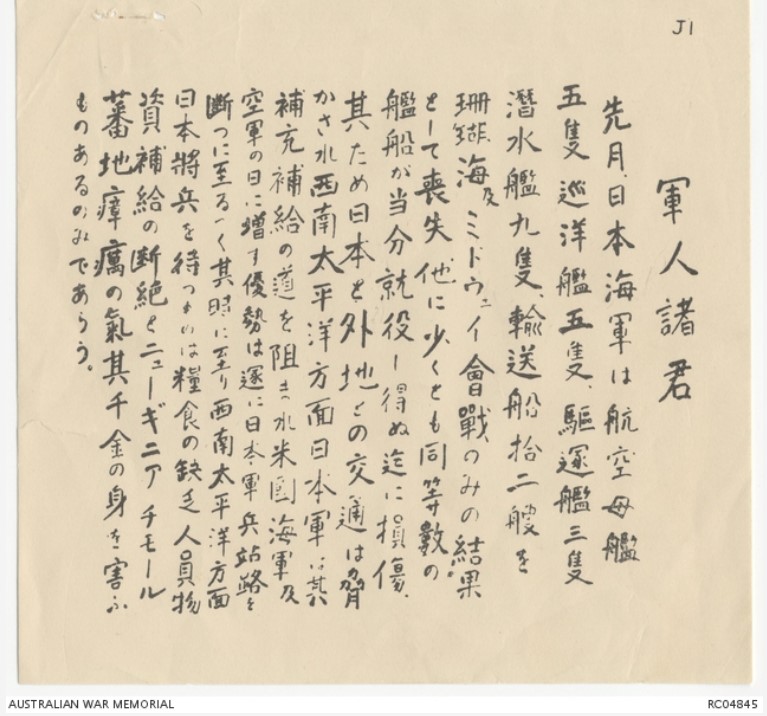 J1
軍人諸君
先月、日本海軍は航空母艦
五隻 巡洋艦五隻、驅逐艦三隻
潛水艦九隻、輸送船拾二艘を
珊瑚海及ミドウェイ會戰のみの結果
として喪失 他に少くとも同等數の
艦船が当分就役し得ぬ迄に損傷、
其ため日本と外地との交通は脅
かされ西南太平洋方面日本軍は其
補充補給の道を阻まれ米國海軍及
空軍の日に増す優勢は遂に日本軍兵站路を
断つに至るべく其時に至り西南太平洋方面
日本將兵を待つものは糧食の缺乏人員物
資補給の断絶とニューギニア チモール
蕃地瘴癘の氣其千金の身を害ふ
ものあるのみであらう。
AUSTRALIAN WAR MEMORIAL
RC04845